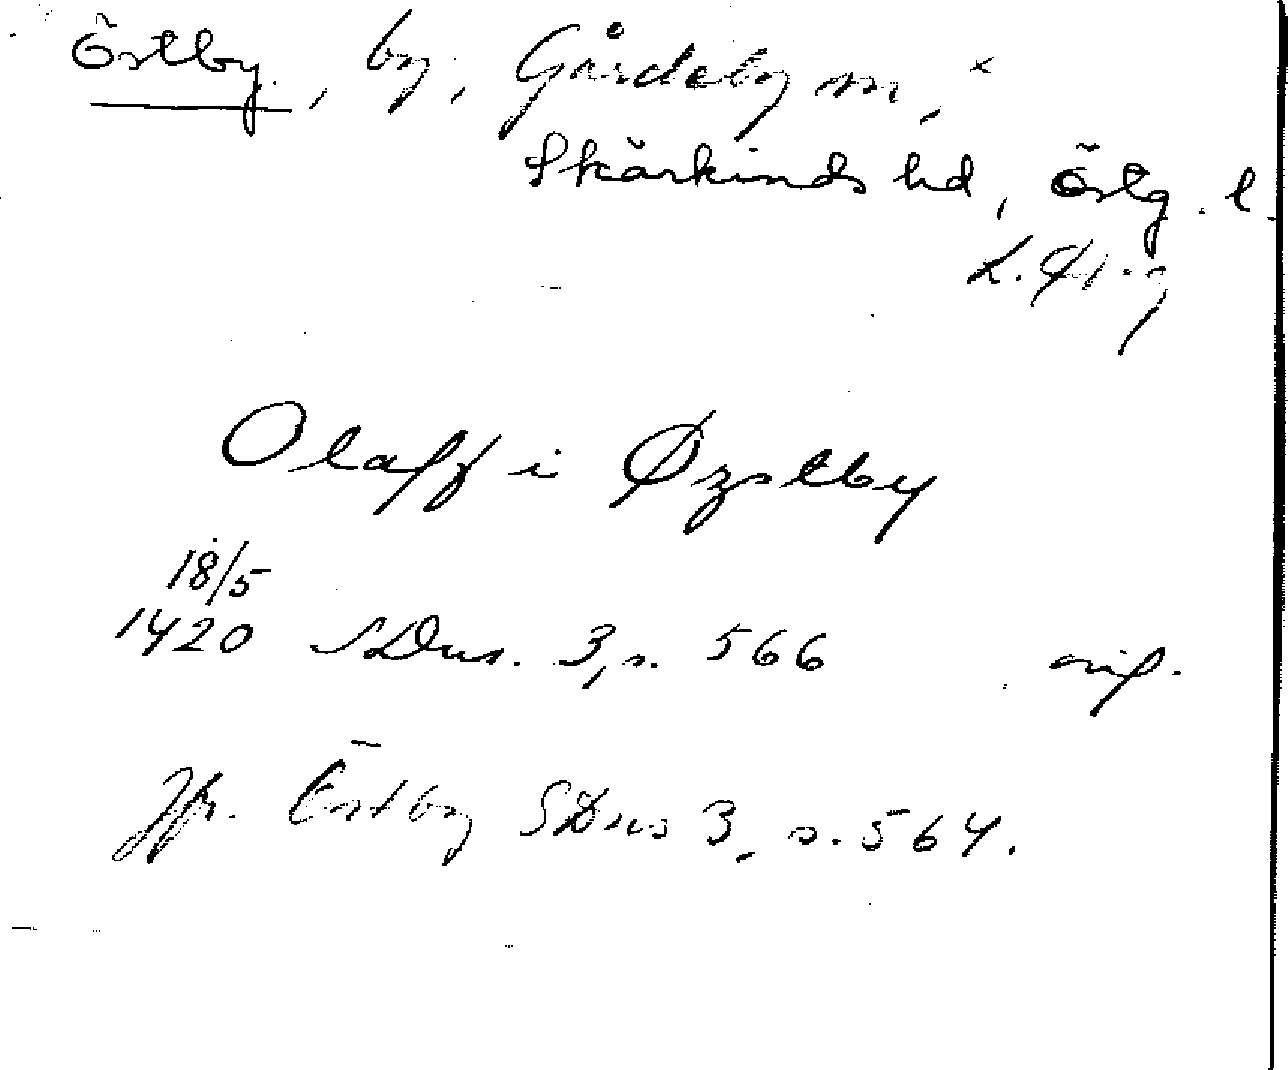 Östby, by, Gårdeby sn,
Skärkinds hd, Östg. l.
Olaff i Øzstby
18/5
1420 SDns. 3, s. 566 orig.
Jfr. Östby SDns 3, s. 564.